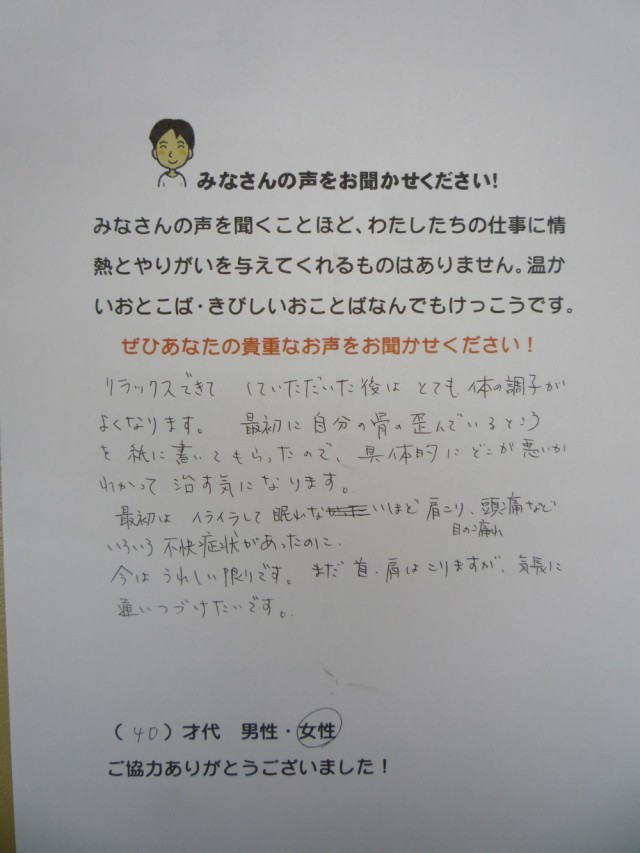 みなさんの声をお聞かせください!
みなさんの声を聞くことほど、わたしたちの仕事に情
熱とやりがいを与えてくれるものはありません。温か
いおとこば・きびしいおことばなんでもけっこうです。
ぜひあなたの貴重なお声をお聞かせください！
リラックスできて していただいた後は とても 体の調子が
よくなります。 最初に 自分の骨の歪んでいるところ
を 紙に書いてもらったので、具体的に どこが悪いか
わかって 治す気になります。
最初は イライラして 眠れないほど 肩こり、頭痛など
目の痛れ
いろいろ 不快症状があったのに、
今は うれしい限りです。 まだ 首・肩は こりますが、気長に
通いつづけたいです。
（ 40 ）才代 男性・女性
ご協力ありがとうございました！